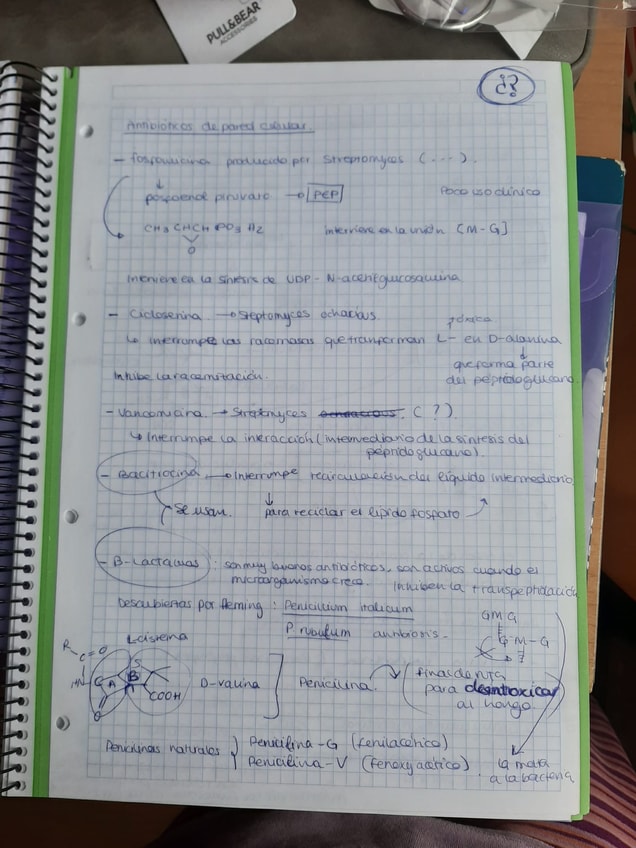 PULL&BEAR
ACCESSORIES
¿?
Antibióticos de pared celular.
- Fosfomicina producido por Streptomyces (...).
↓
fosfoenol piruvato → [PEP] Poco uso clínico
CH3 CHCH PO3 H2 interviene en la unión [M-G]
O
Interviene en la síntesis de UDP-N-acentilglucosamina
- Cicloserina → Streptomyces
↳ interrumpe las racemasas que tranforman L- en D-alanina
que forma parte
del peptidoglucano.
Inhibe la racemización.
- Vancomicina → Streptomyces (?).
↳ Interrumpe la interacción (intermediario de la síntesis del
peptidoglucano).
- Bacitracina → Interrumpe recirculación del líquido intermediario
Se usan. para reciclar el lípido fosfato
- β-Lactamas : son muy buenos antibióticos, son activos cuando el
microorganismo crece. Inhiben la
Descubiertas por Fleming : Penicillium italicum
P. antibiosis.
G M G
G-M-G
L-cisteina
R C=O
HN C A B S
O COOH
D-valina Penicilina. (finas de ruta
para desintoxicar
al hongo)
Penicilinas naturales Penicilina-G (fenilacético)
Penicilina-V (fenoxyacético). la mata
a la bacteria